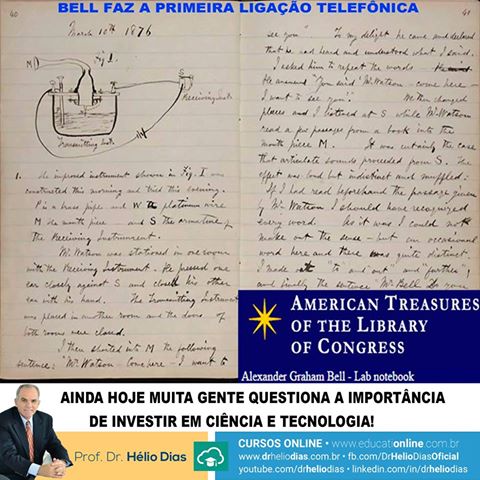 BELL FAZ A PRIMEIRA LIGAÇÃO TELEFÔNICA
40
March 10th 1876
Fig. 1.
M
S
P
W
Receiving Inst.
Transmitting Inst.
1. The improved instrument shown in Fig. I was
constructed this morning and tried this evening.
P is a brass pipe and W the platinum wire
M the mouth piece and S the armature of
the Receiving Instrument.
Mr. Watson was stationed in one room
with the Receiving Instrument. He pressed one
ear closely against S and closed his other
ear with his hand. The Transmitting Instrument
was placed in another room and the doors of
both rooms were closed.
I then shouted into M the following
sentence: "Mr. Watson - Come here - I want to
41
see you". To my delight he came and declared
that he had heard and understood what I said.
I asked him to repeat the words.
He answered "You said 'Mr. Watson - come here -
I want to see you'." We then changed
places and I listened at S while Mr. Watson
read a few passages from a book into the
mouth piece M. It was certainly the case
that articulate sounds proceeded from S. The
effect was loud but indistinct and muffled.
If I had read beforehand the passage given
by Mr. Watson I should have recognized
every word. As it was I could not
make out the sense - but an occasional
word here and there was quite distinct.
I made out "to" and "out" and "further";
and finally the sentence "Mr. Bell Do you
AMERICAN TREASURES
OF THE LIBRARY
OF CONGRESS
Alexander Graham Bell - Lab notebook
AINDA HOJE MUITA GENTE QUESTIONA A IMPORTÂNCIA
DE INVESTIR EM CIÊNCIA E TECNOLOGIA!
Prof. Dr. Hélio Dias
CURSOS ONLINE • www.educationline.com.br
www.drheliodias.com.br • fb.com/DrHélioDiasOficial
youtube.com/drheliodias • linkedin.com/in/drheliodias